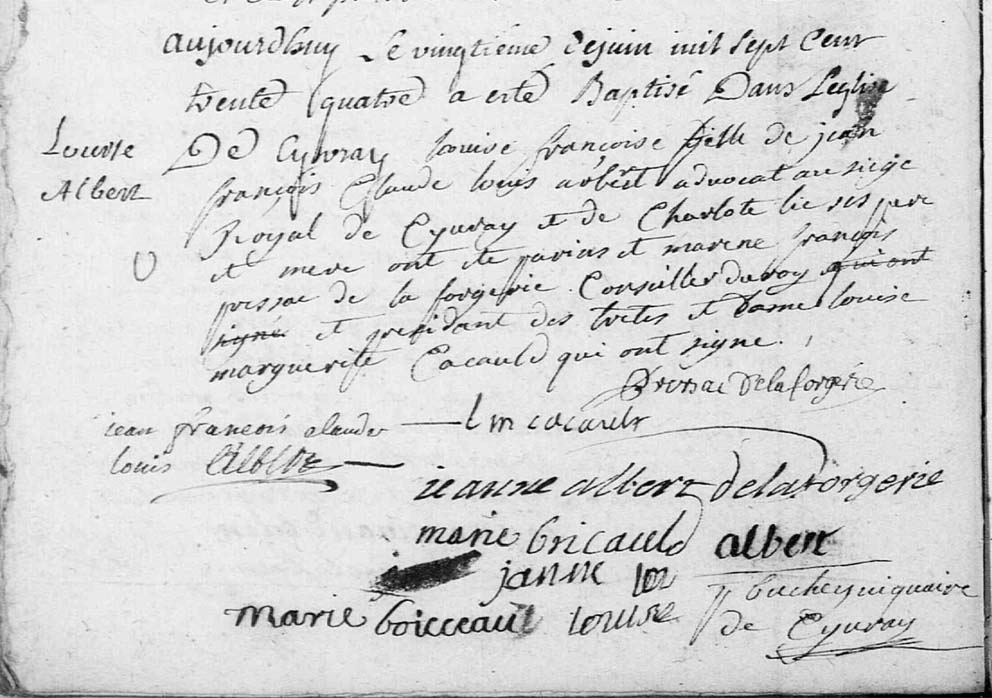 aujourdhuy Le vingtieme de juin mil sept Cent
trente quatre a esté Baptisé Dans L'eglise
Louise
Albert
De Cyvray louise françoise fille de jean
françois Claude louis albert advocat au siege
Royal de Cyvray et de Charlote lie ses pere
et mere ont ete parins et marene françois
pressac de la forgerie Conseiller du roy qui ont
signé et president des tretes et Dame louise
marguerite Cacauld qui ont signe.
Pressac De la forgerie
jean francois claude
louis Albert
l m cacault
jeanne albert de laforgerie
marie bricauld albert
janne
marie boisseau louise
de Cyvray